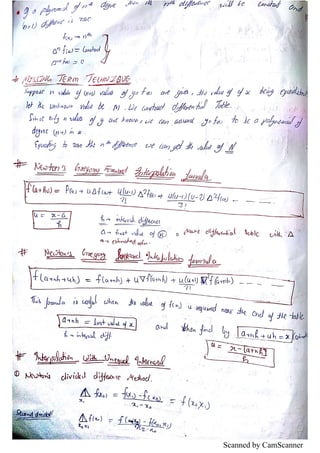 • If a polynomial of nth degree then its nth difference will be constant and
(n+1) difference is zero
f(x) → nth
Δⁿ f(x) = Constant
Δⁿ⁺¹ f(x) = 0
* MISSING TERM TECHNIQUE
Suppose n value of out of (n+1) value of y = f(x) are given, the value of x being equidistant
let the unknown value be M. We construct differential Table.
Since only n value of y are known, we can assume y = f(x) to be a polynomial of
degree (n-1) in x.
Equating to zero the nth difference we can get the value of M
# Newton's Gregory Forward Interpolation formula
f(a+hu) = f(a) + uΔf(a) + u(u-1)/2! Δ²f(a) + u(u-1)(u-2)/3! Δ³f(a) - - - -
u = x-a/h
h → interval difference
a → first value of x
differential table with Δ
# Newton's Gregory Backward Interpolation formula
f(a+nh+uh) = f(a+nh) + u∇f(a+nh) + u(u+1)/2! ∇²f(a+nh) - - - -
This formula is useful when the value of f(x) is required near the end of the table
a+nh = last value of x and then find by a+nh+uh = x
h → interval diff
u = x-(a+nh)/h
# Interpolation with Unequal Interval
① Newton's divided difference Method.
f(x₁) - f(x₀) / x₁ - x₀ = f(x₀x₁)
Second divided
Scanned by CamScanner